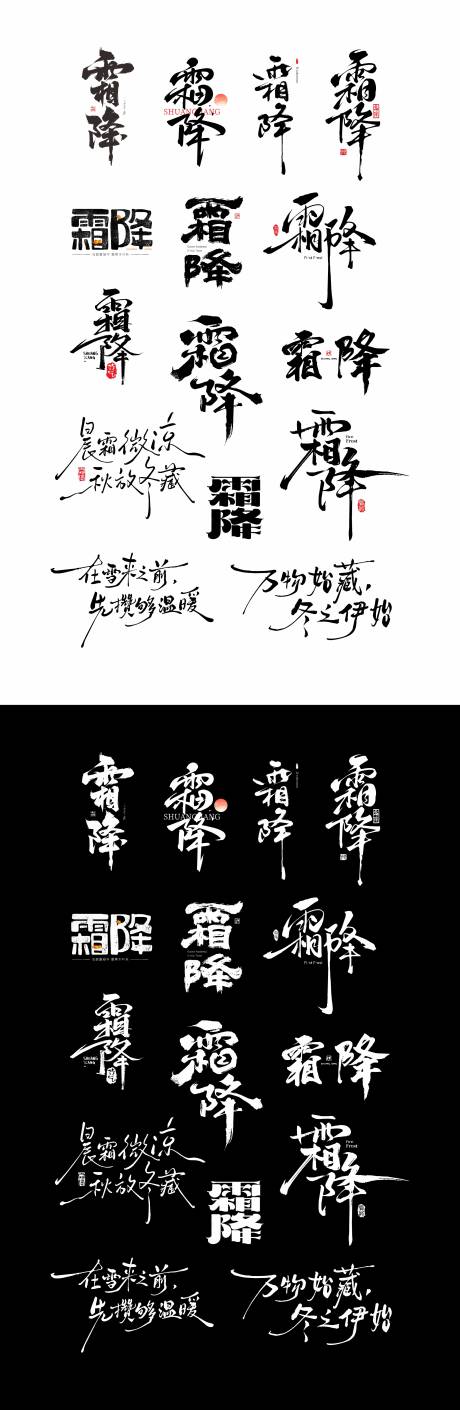 霜降
霜降
SHUANGJIANG
霜降
霜降
霜降
霜降
霜降
First Frost
霜降
SHUANG
JIANG
霜降
霜降
晨霜微凉
秋放冬藏
霜降
霜降
First
Frost
在雪来之前，
先攒够温暖
万物始藏，
冬之伊始
霜降
霜降
SHUANGJIANG
霜降
霜降
霜降
霜降
霜降
First Frost
霜降
SHUANG
JIANG
霜降
霜降
晨霜微凉
秋放冬藏
霜降
霜降
First
Frost
在雪来之前，
先攒够温暖
万物始藏，
冬之伊始